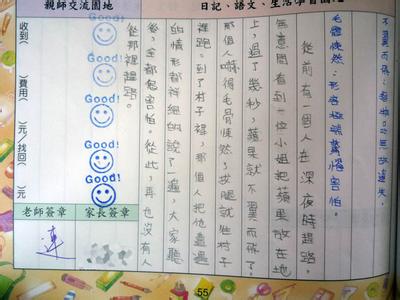 親師交流園地
日記、語文、生活學習園
不翼而飛:無故遺失。
毛骨悚然:形容極端驚惶害怕。
從前有一個人在深夜時趕路,
無意間看到一位小姐把蘋果放在地
上,過了幾秒,蘋果就不翼而飛了,
那個人嚇得毛骨悚然,拔腿就往村子
裡跑。到了村子裡,那個人把他遭遇
的情形都詳細的說了一遍,大家聽
後,全都很害怕。從此,再也沒有人
從那裡趕路。
Good!
Good!
Good!
Good!
Good!
收到( )費用( )元/找回( )元
老師簽章
家長簽章
55